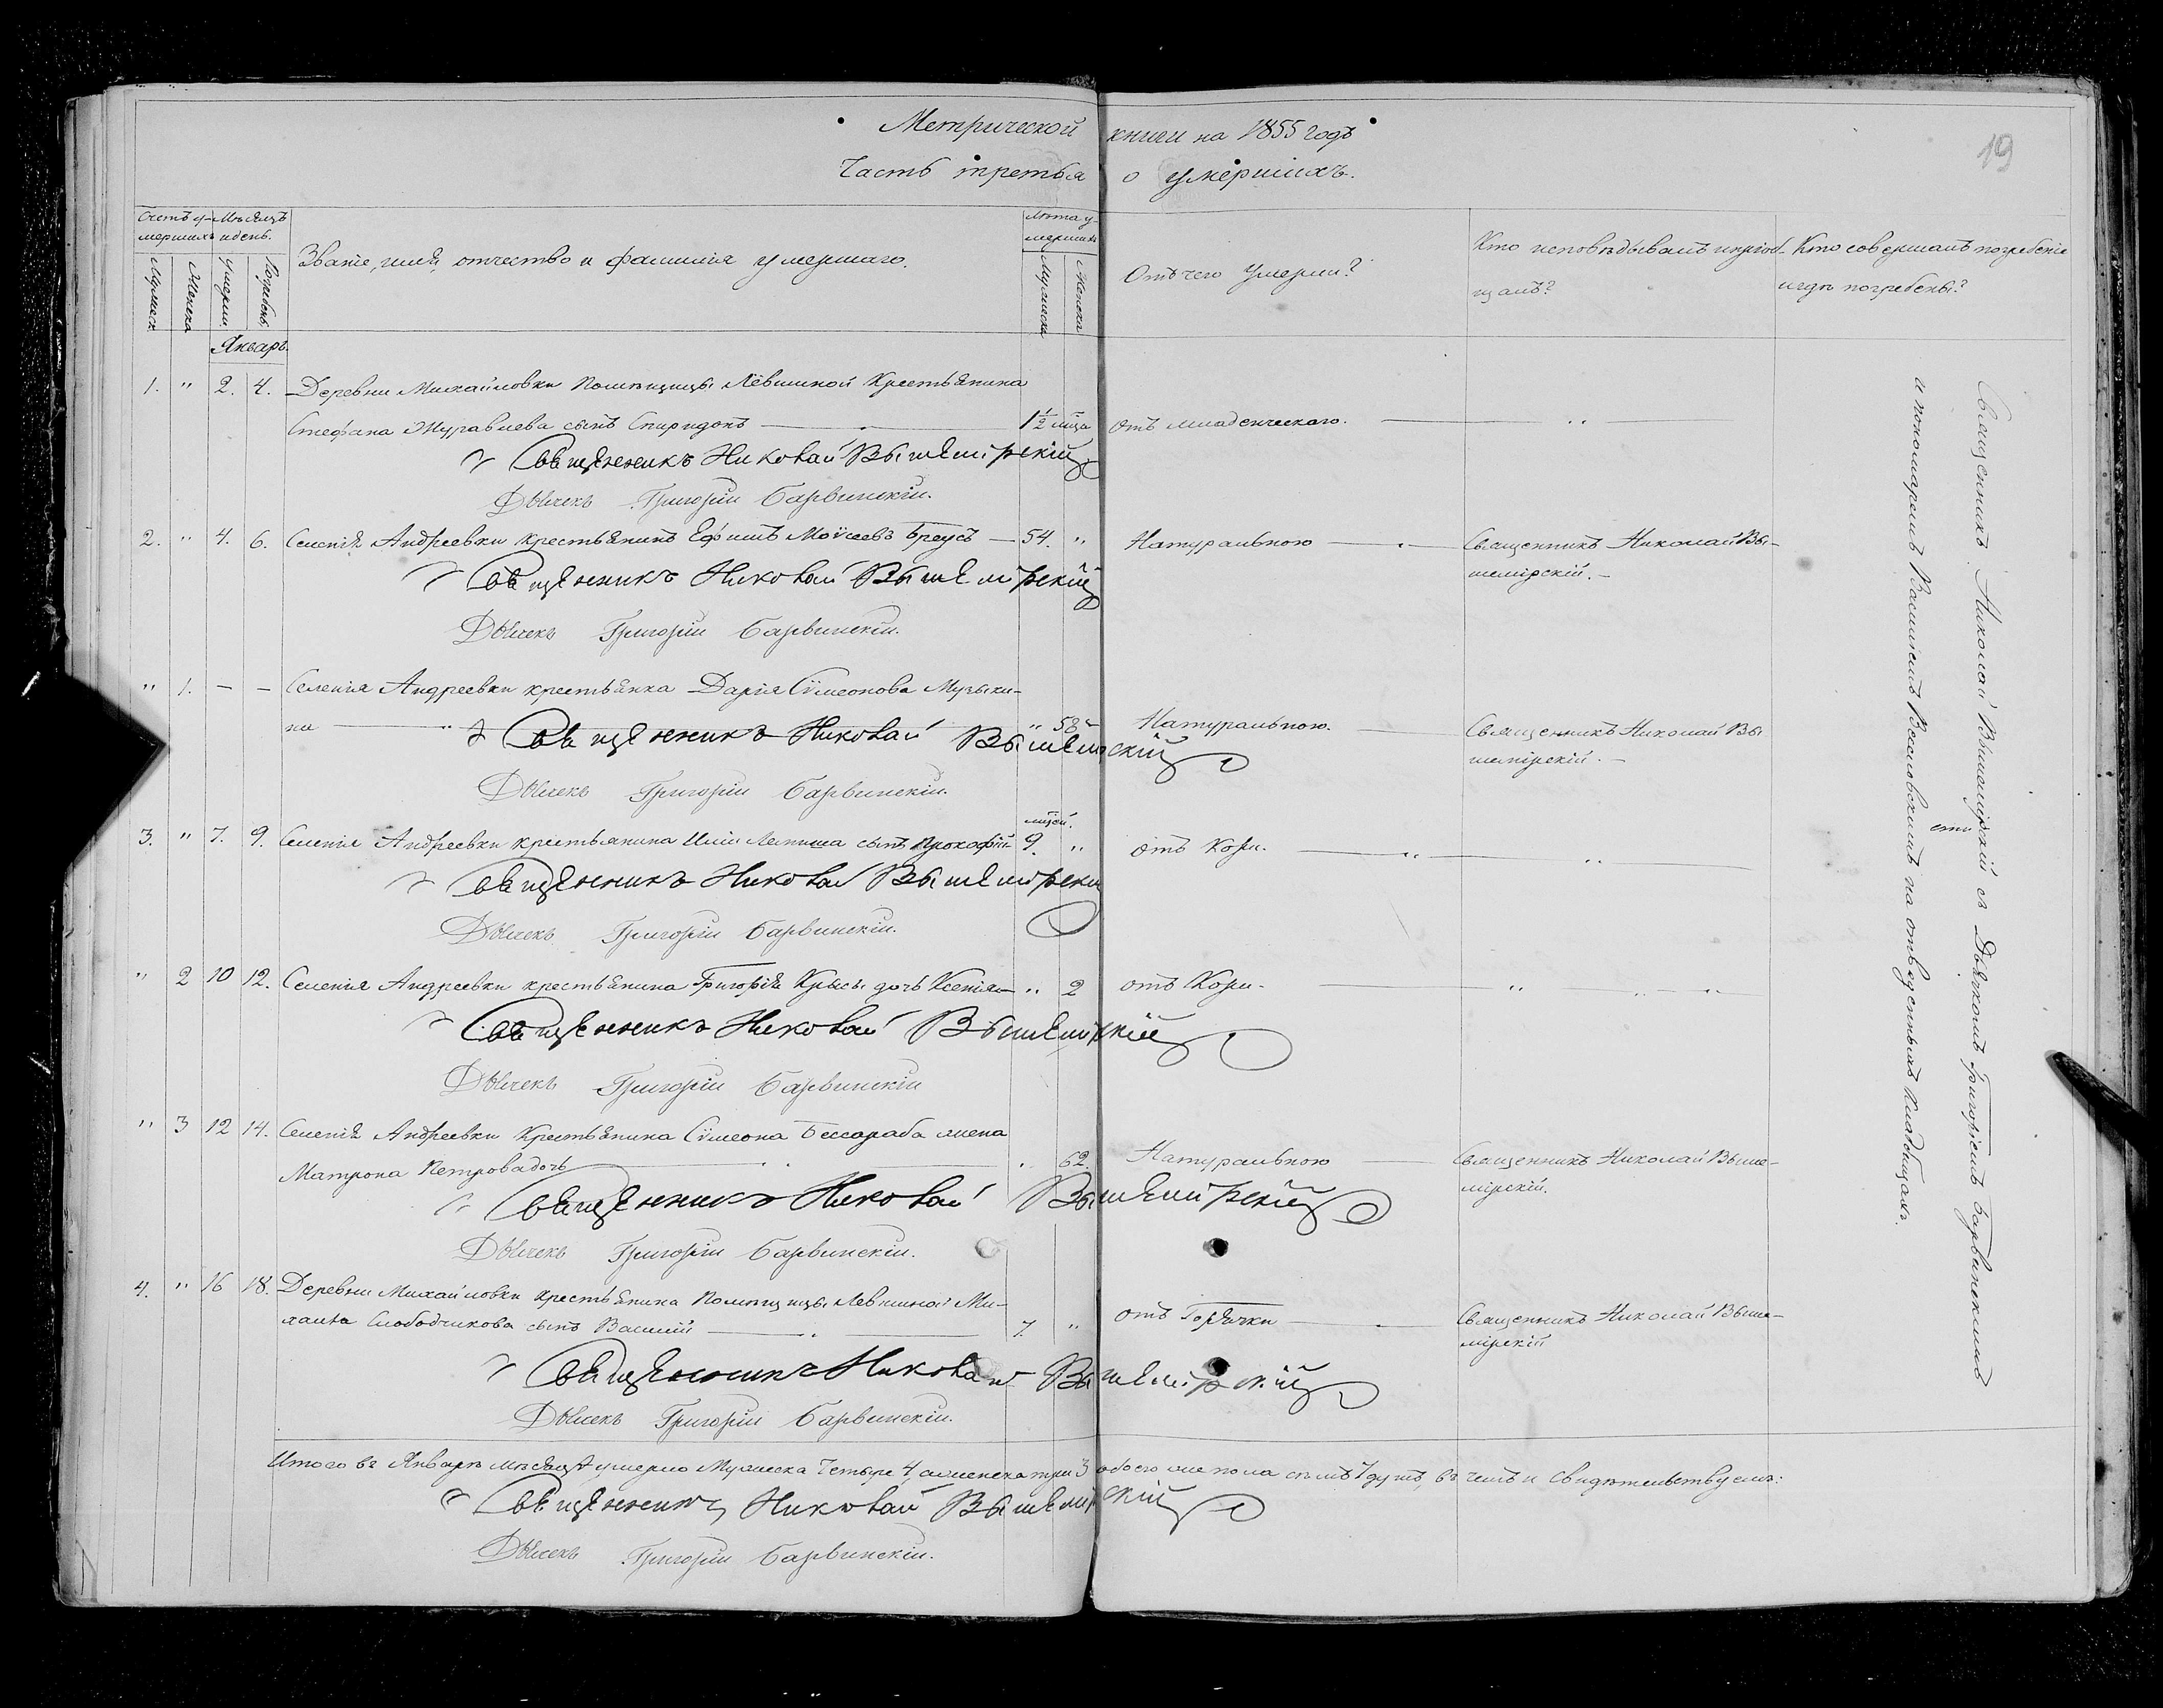 Метрической книги на 1855 годъ
Часть третья о умершихъ.
19
Счетъ у-
мершихъ
Мѣсяцъ
и день.
Званіе, имя, отчество и фамилія умершаго.
Лѣта у-
мершихъ
Отъ чего умерли?
Кто исповѣдывалъ и приоб-
щалъ?
Кто совершалъ погребеніе
и гдѣ погребены?
Мужеск.
Женска
Умерли
Погребены
Мужеска
Женска
Январь.
1. " 2. 4. Деревни Михайловки Помѣщицы Лёвшиной Крестьянина
Стефана Журавлева сынъ Спиридонъ — 1½ мца отъ младенческаго. — " —
Священникъ Николай Вышемірскій
Дьячекъ Григорій Барвинскій.
2. " 4. 6. Селенія Андреевки крестьянинъ Ефимъ Моѵсеевъ Бреусъ — 54. " Натуральною — Священникъ Николай Вы-
шемірскій. —
Священникъ Николай Вышемірскій
Дьячекъ Григорій Барвинскій.
" 1. — — Селенія Андреевки крестьянка Дарія Сѵмеонова Музыки-
на — " 58 Натуральною. — Священникъ Николай Вы
шемірскій. —
Священникъ Николай Вышемірскій
Дьячекъ Григорій Барвинскій.
3. " 7. 9. Селенія Андреевки крестьянина Иліи сынъ Прокофій 9. мцей. " отъ Кори. — " — " —
Священникъ Николай Вышемірскій
Дьячекъ Григорій Барвинскій.
" 2 10 12. Селенія Андреевки крестьянина Григорія Крысы дочь Ксенія — " 2 отъ Кори — " — " — " —
Священникъ Николай Вышемірскій
Дьячекъ Григорій Барвинскій
" 3 12 14. Селенія Андреевки Крестьянина Сѵмеона Бессараба жена
Матрона Петрова дочь — 62. Натуральною — Священникъ Николай Выше-
мірскій.
Священникъ Николай Вышемірскій
Дьячекъ Григорій Барвинскій.
4. " 16 18. Деревни Михайловки крестьянина Помѣщицы Левшиной Ми-
хаила Слободчикова сынъ Василій — 7. " отъ Горячки — Священникъ Николай Выше-
мірскій
Священникъ Николай Вышемірскій
Дьячекъ Григорій Барвинскій.
Итого въ Январѣ мѣсяцѣ умерло Мужеска Четыре 4, а женска три 3 обоего же пола семъ 7 душъ, въ чемъ и свидѣтельствуемъ:
Священникъ Николай Вышемірскій
Дьячекъ Григорій Барвинскій.
Священникъ Николай Вышемірскій съ Дьячкомъ Григоріемъ Барвинскимъ
и пономаремъ Василіемъ на отведенныхъ кладбищахъ.